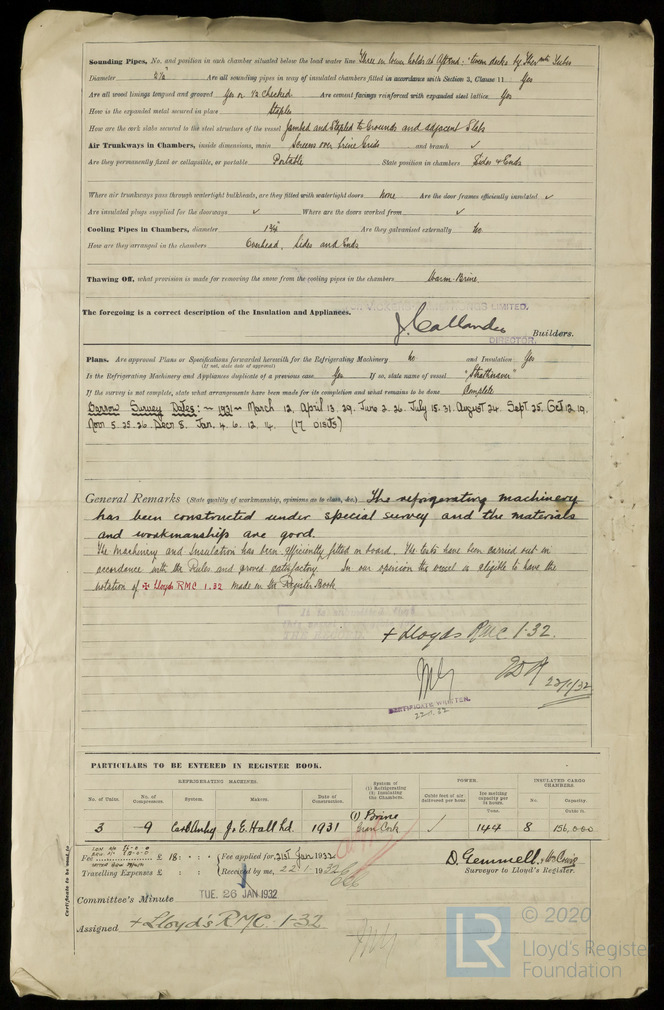 Sounding Pipes, No. and position in each chamber situated below the load water line Three in lower holds at Aft end: - tween decks by Thermo Tubes
Diameter 2½" Are all sounding pipes in way of insulated chambers fitted in accordance with Section 2, Clause 11 Yes
Are all wood linings tongued and grooved Yes or ½ Checked. Are cement facings reinforced with expanded steel lattice Yes
How is the expanded metal secured in place Staples
How are the cork slabs secured to the steel structure of the vessel Jambed and Stapled to Grounds and adjacent Slabs
Air Trunkways in Chambers, inside dimensions, main Screens over brine Grids and branch ✓
Are they permanently fixed or collapsible, or portable Portable State position in chambers Sides & Ends
Where air trunkways pass through watertight bulkheads, are they fitted with watertight doors None Are the door frames efficiently insulated ✓
Are insulated plugs supplied for the doorways ✓ Where are the doors worked from ✓
Cooling Pipes in Chambers, diameter 1¾" Are they galvanised externally No
How are they arranged in the chambers Overhead, Sides and Ends
Thawing Off, what provision is made for removing the snow from the cooling pipes in the chambers Warm Brine.
The foregoing is a correct description of the Insulation and Appliances.
LIMITED.
J. Callander
DIRECTOR. Builders.
Plans. Are approved Plans or Specifications forwarded herewith for the Refrigerating Machinery No and Insulation Yes
(If not, state date of approval)
Is the Refrigerating Machinery and Appliances duplicate of a previous case Yes If so, state name of vessel "Strathnaver"
If the survey is not complete, state what arrangements have been made for its completion and what remains to be done Complete
Barrow Survey Dates: - 1931 - March 12, April 13. 29. June 2. 26. July 15. 31. August 24. Sept. 25. Oct 12, 19,
Novr 5. 25. 26. Decr 8. Jan. 4. 6. 12. 14. (17 visits)
General Remarks (State quality of workmanship, opinions as to class, &c.) The refrigerating machinery
has been constructed under special survey and the materials
and workmanship are good.
The Machinery and Insulation has been efficiently fitted on board. The tests have been carried out in
accordance with the Rules and proved satisfactory. In our opinion the vessel is eligible to have the
notation of ✠ Lloyds RMC 1.32 made in the Register Book
+ Lloyds RMC 1.32.
22/1/32
CERTIFICATE WRITTEN.
PARTICULARS TO BE ENTERED IN REGISTER BOOK.
REFRIGERATING MACHINES. System of (1) Refrigerating (2) Insulating the Chambers. POWER. INSULATED CARGO CHAMBERS.
No. of Units. No. of Compressors. System. Makers. Date of Construction. Cubic feet of air delivered per hour Ice melting capacity per 24 hours. Tons. No. Capacity. Cubic ft.
3 9 Carb Anhy J & E. Hall Ld. 1931 (1) Brine Gran Cork ✓ 144 8 156,000
Fee £ 18: : Fee applied for, 21st Jan 1932
Travelling Expenses £ : : Received by me, 22.1.1932
D. Gemmell & Wm Craig
Surveyor to Lloyd's Register.
Committee's Minute TUE. 26 JAN 1932
Assigned + Lloyd's RMC 1-32
Certificate to be sent to
LR © 2020
Lloyd's Register
Foundation